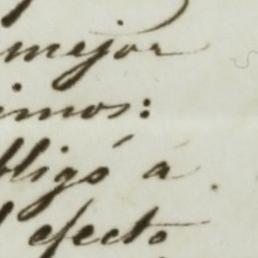 mejor
imos:
bligó á
efecto